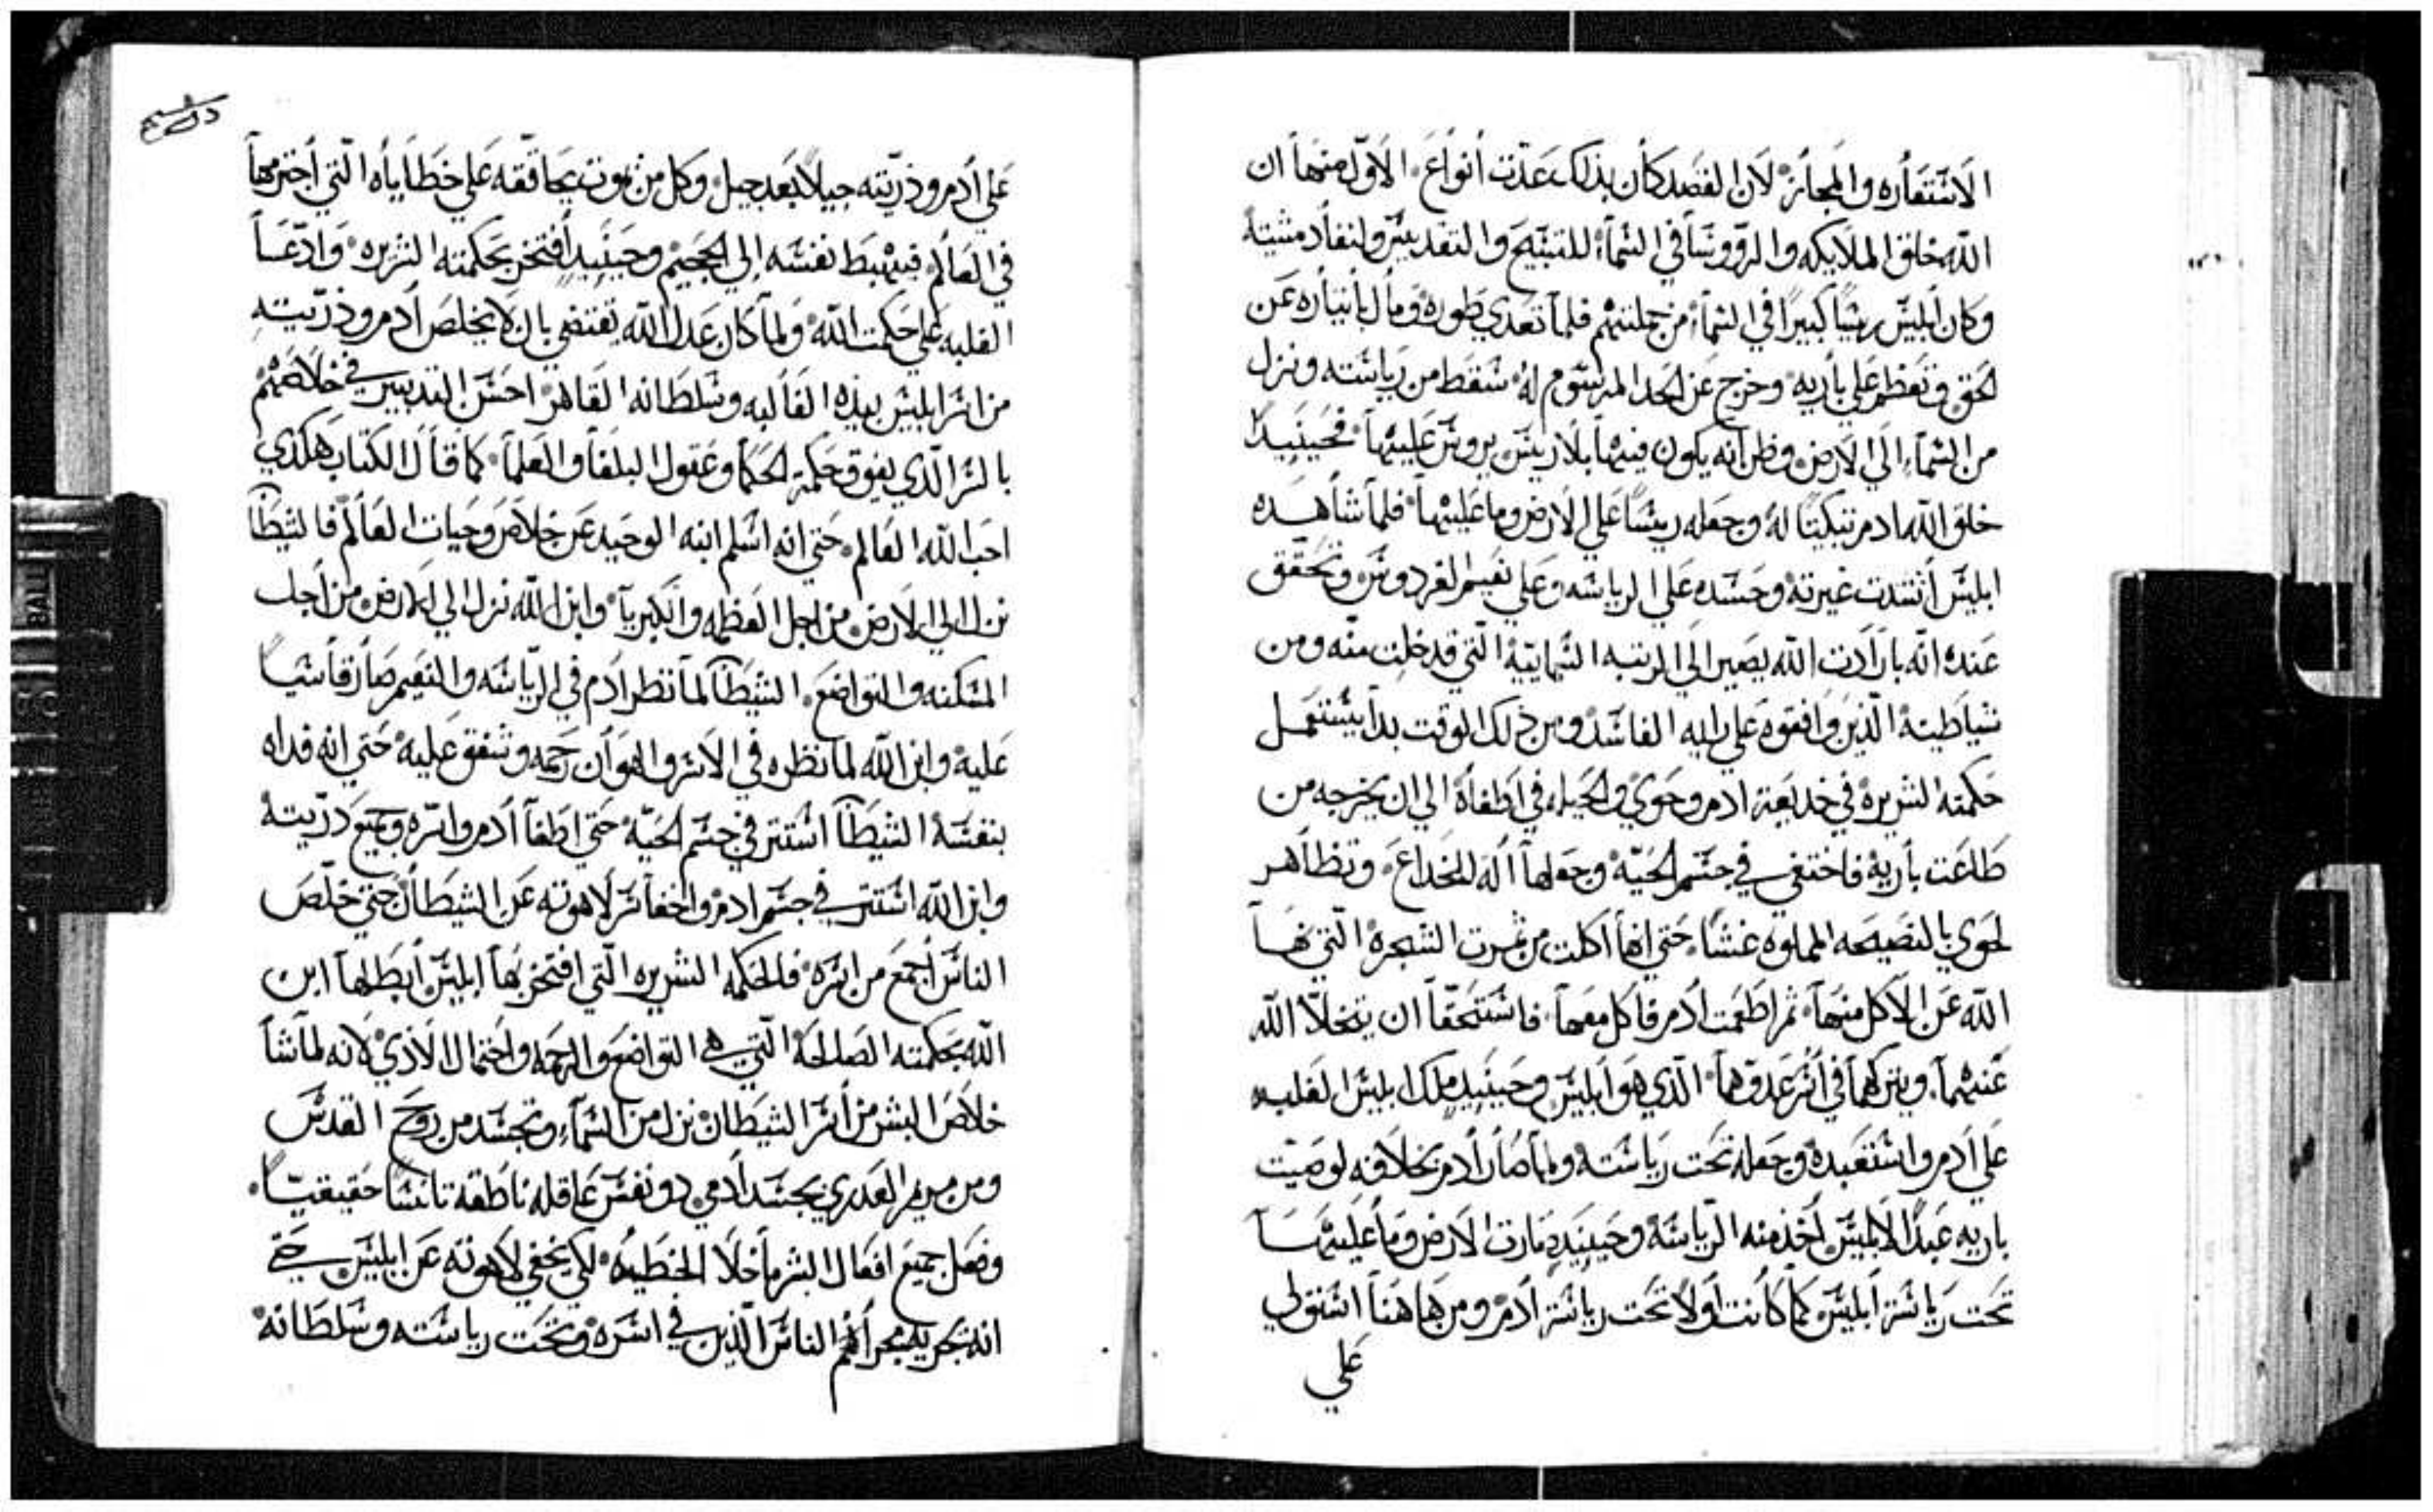 الاستعاره والمجاز لان القصد كان بذلك عدت أنواع الاول منها ان
الله خلق الملايكه والروسا في السمآء للتسبيح والتقديس وانفاد مشيته
وكان ابليس ريسًا كبيرًا في السمآء من جملتهم فلما تعدي طوره ومال باختياره عن
الحق وتعظم علي باريه وخرج عن الحد المرسوم له سقط من رياسته ونزل
من السمآء الي الارض وظن انه يكون فيها بلا ريس يروس عليها فحينيدٍ
خلق الله ادم تبكيتًا له وجعله ريسًا علي الارض وما عليها فلما شاهده
ابليس أشتدت غيرته وحسده علي الرياسه وعلي نعيم الفردوس وتحقق
عنده انه بارادت الله يصير الي الرتبه السمايية التي قد خلت منه ومن
شياطينه الذين وافقوه علي رايه الفاسد ومن ذلك الوقت بدا يستعمل
حكمته الشريره في خديعة ادم وحوي والحيله في اطغاه الي ان يخرجه من
طاعت باريه فاختفي في جسم الحيه وجعلها اله للخداع وتظاهر
لحوي بالنصيحه المملوه غشًا حتي انها أكلت من ثمرت الشجره التي نها
الله عن الاكل منها ثم اطعمت ادم فاكل معها فاستحقا ان يتخلا الله
عنهما ويتركهما في أسر عدوهما الذي هو ابليس وحينيدٍ ملك ابليس الغلبه
علي ادم واستعبده وجعله تحت رياسته ولما صار ادم بخلافه لوصيت
باريه عبدًا لابليس أخذ منه الرياسه وحينيدٍ صارت الارض وما عليها
تحت رياسة ابليس كما كانت أولا تحت رياسة ادم ومن هاهنا استولي
علي
علي أدم وذريته جيلاً بعد جيل وكل من يموت يحاققه علي خطاياه التي أجترمها
في العالم فيهبط نفسه إلي الجحيم وحينيدٍ أفتخر بحكمته الشريره وادعا
الغلبه علي حكمت الله ولما كان عدل الله يقتضي بان لا يخلص أدم وذريته
من اسر ابليس بيده الغالبه وسلطانه القاهر احسن التدبير في خلاصهم
بالسر الذي يفوق حكمة الحكما وعقول البلغا والعلما كما قال الكتاب هكدي
احب الله العالم حتي انه اسلم ابنه الوحيد عن خلاص وحيات العالم فالشيطا
نزل الي الارض من اجل العظمه والكبريآ وابن الله نزل الي الارض من أجل
المسكنه والتواضع الشيطا لما نظر ادم في الرياسه والنعيم صار قاسيًا
عليه وابن الله لما نظره في الاسر والهوان رحمه وشفق عليه حتي انه فداه
بنفسه الشيطا استتر في جسم الحيه حتي اطغا أدم واسره وجميع دريته
وابن الله استتر في جسم ادم واخفا سر لاهوته عن الشيطان حتي خلص
الناس أجمع من اسره فالحكمه الشريره التي افتخر بها ابليس أبطلها ابن
الله بحكمته الصالحة التي هي التواضع والرحمه واحتمال الاذي لانه لما شا
خلاص البشر من أسر الشيطان نزل من السمآء وتجسد من روح القدس
ومن مريم العدري بجسد أدمي دو نفس عاقله ناطقه تانسًا حقيقيًا
وفعل جميع افعال البشر ما خلا الخطيه لكي يخفي لاهوته عن ابليس حتي
انه يجريه مجرا الناس الذين في اسره وتحت رياسته وسلطانه